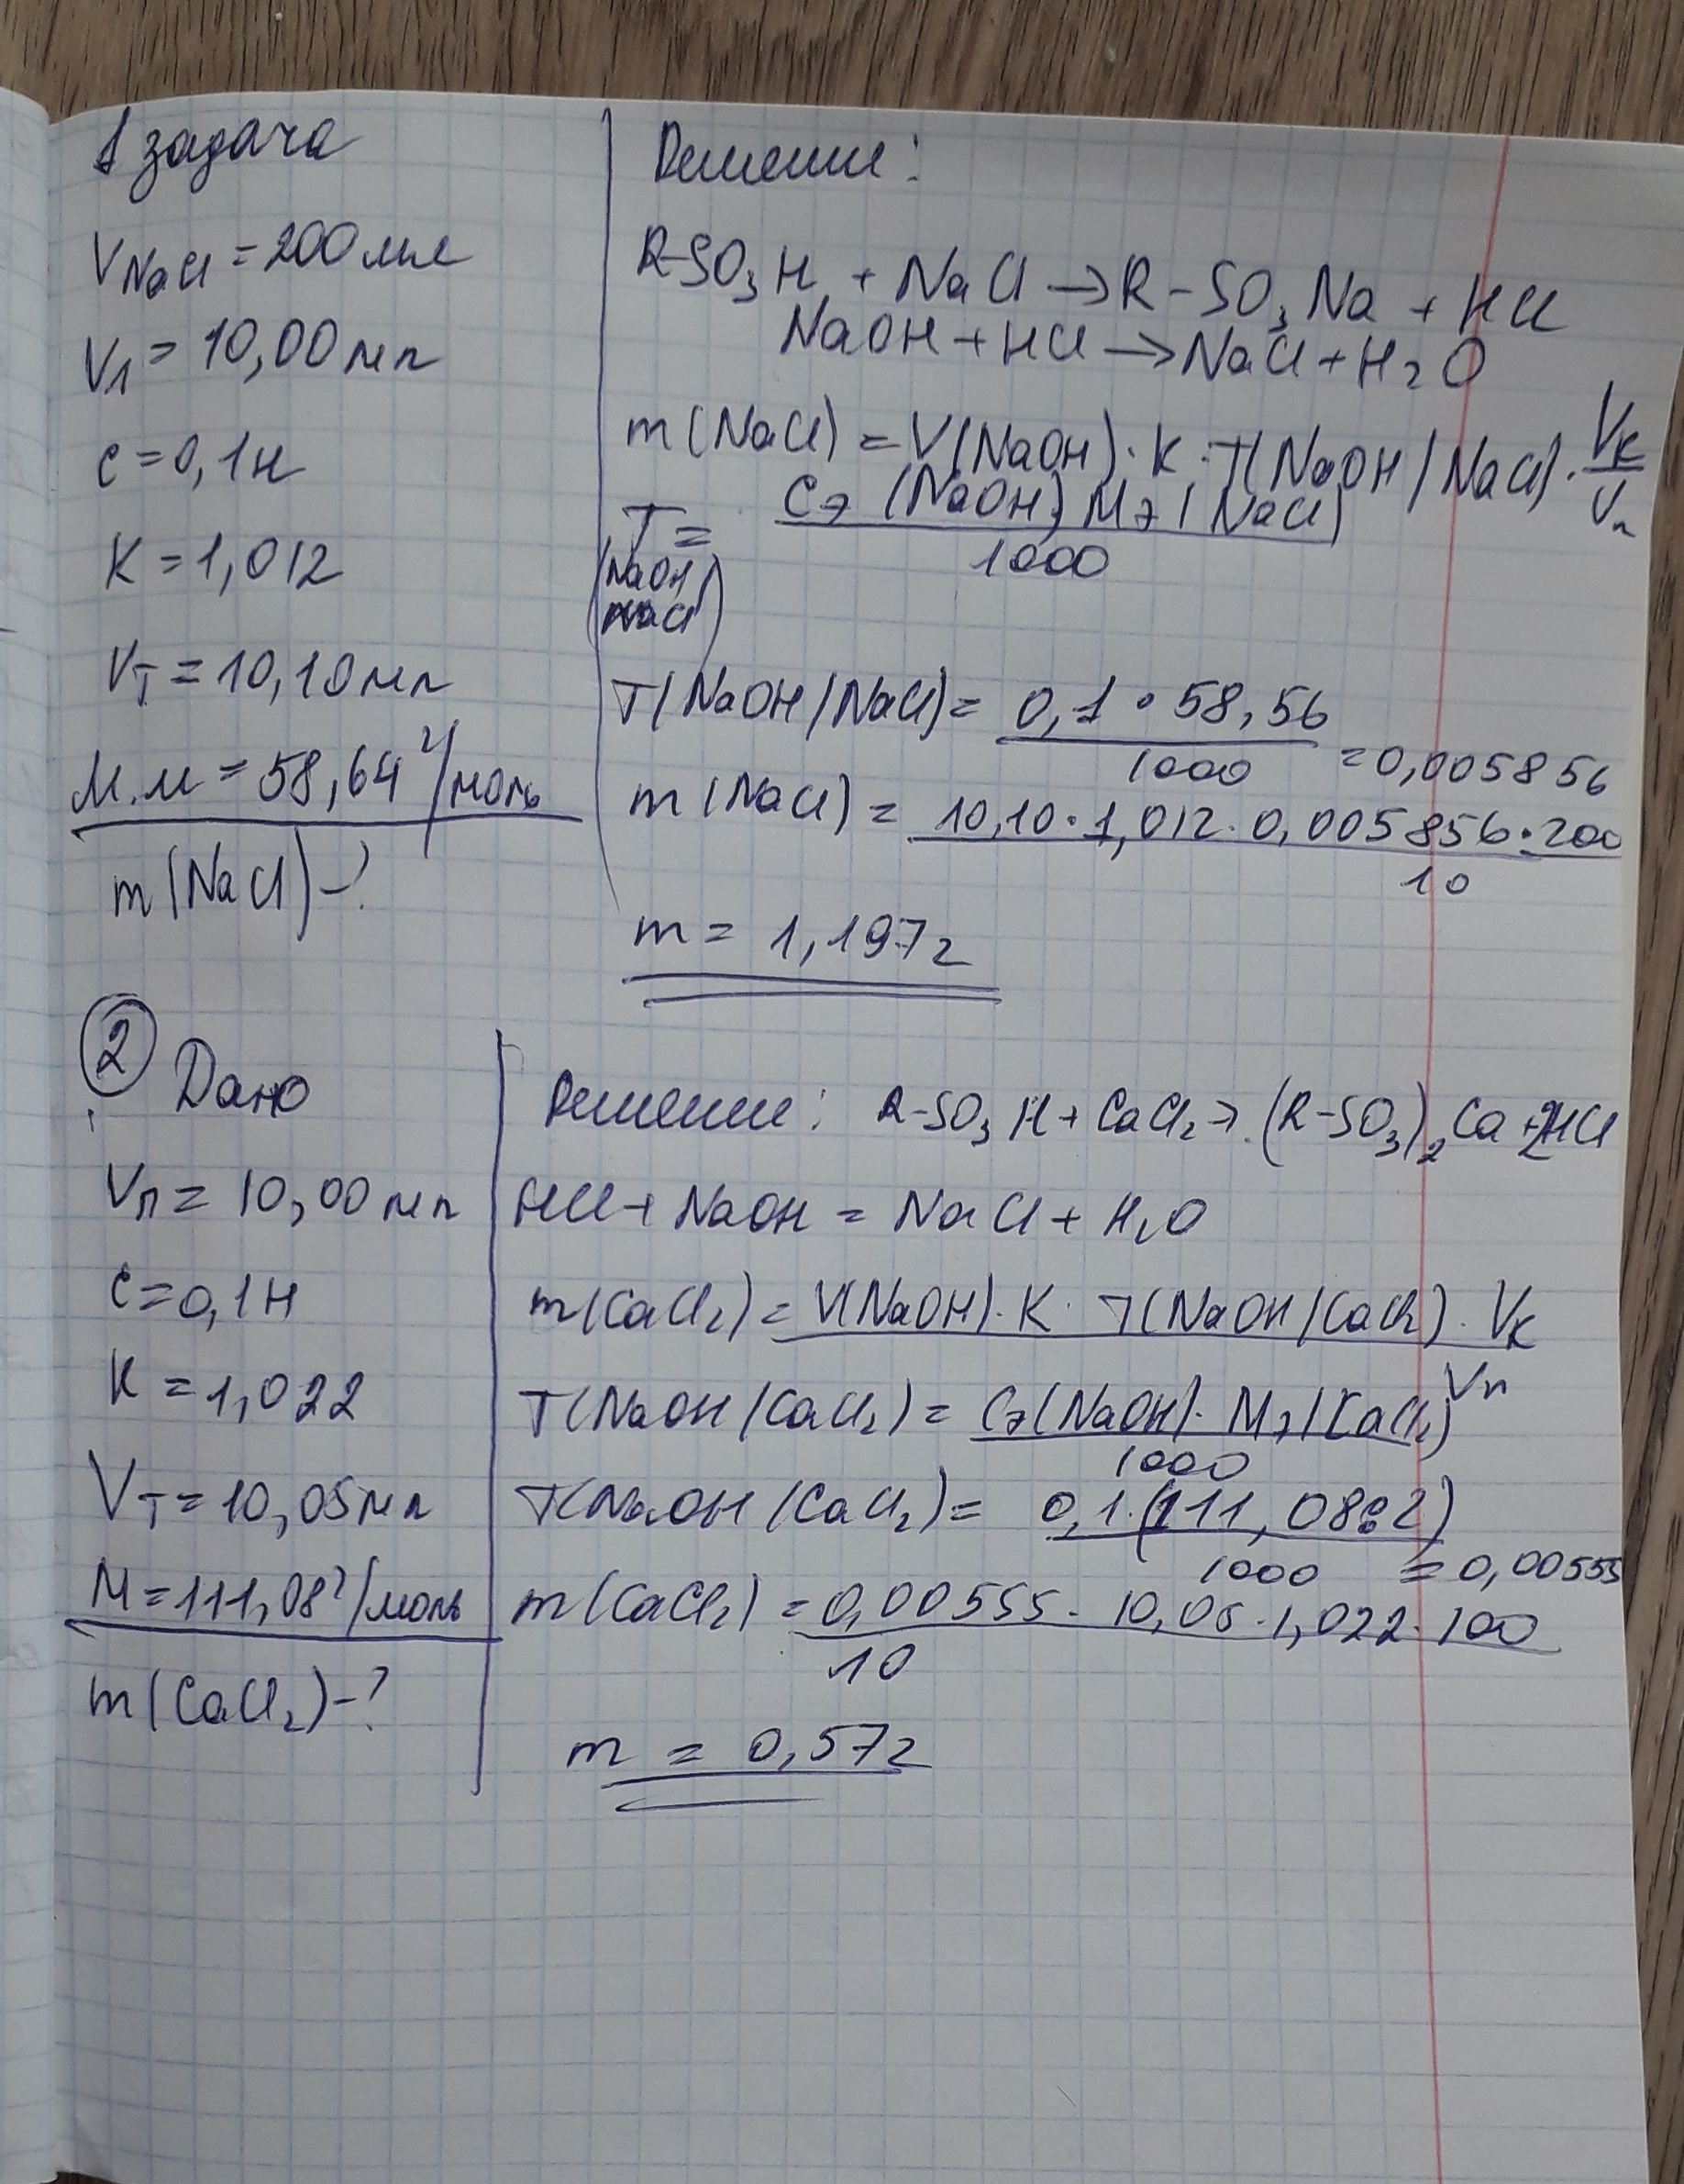 1 задача
V NaCl = 200 мл
V1 = 10,00 мл
c = 0,1 н
K = 1,012
VT = 10,10 мл
М.м = 58,64 г/моль
m(NaCl) - ?
Решение:
R-SO3H + NaCl → R-SO3Na + HCl
NaOH + HCl → NaCl + H2O
m(NaCl) = V(NaOH) · K · T(NaOH/NaCl) · Vк/Vп
T(NaOH/NaCl) = Cэ(NaOH) Mэ(NaCl) / 1000
T(NaOH/NaCl) = 0,1 · 58,56 / 1000 = 0,005856
m(NaCl) = 10,10 · 1,012 · 0,005856 · 200 / 10
m = 1,197 г
2 Дано
Vп = 10,00 мл
c = 0,1 н
K = 1,022
VT = 10,05 мл
M = 111,08 г/моль
m(CaCl2) - ?
Решение: R-SO3H + CaCl2 → (R-SO3)2Ca + 2HCl
HCl + NaOH = NaCl + H2O
m(CaCl2) = V(NaOH) · K · T(NaOH/CaCl2) · Vк / Vп
T(NaOH/CaCl2) = Cэ(NaOH) · Mэ(CaCl2) / 1000
T(NaOH/CaCl2) = 0,1 · (111,08:2) / 1000 = 0,00555
m(CaCl2) = 0,00555 · 10,05 · 1,022 · 100 / 10
m = 0,57 г